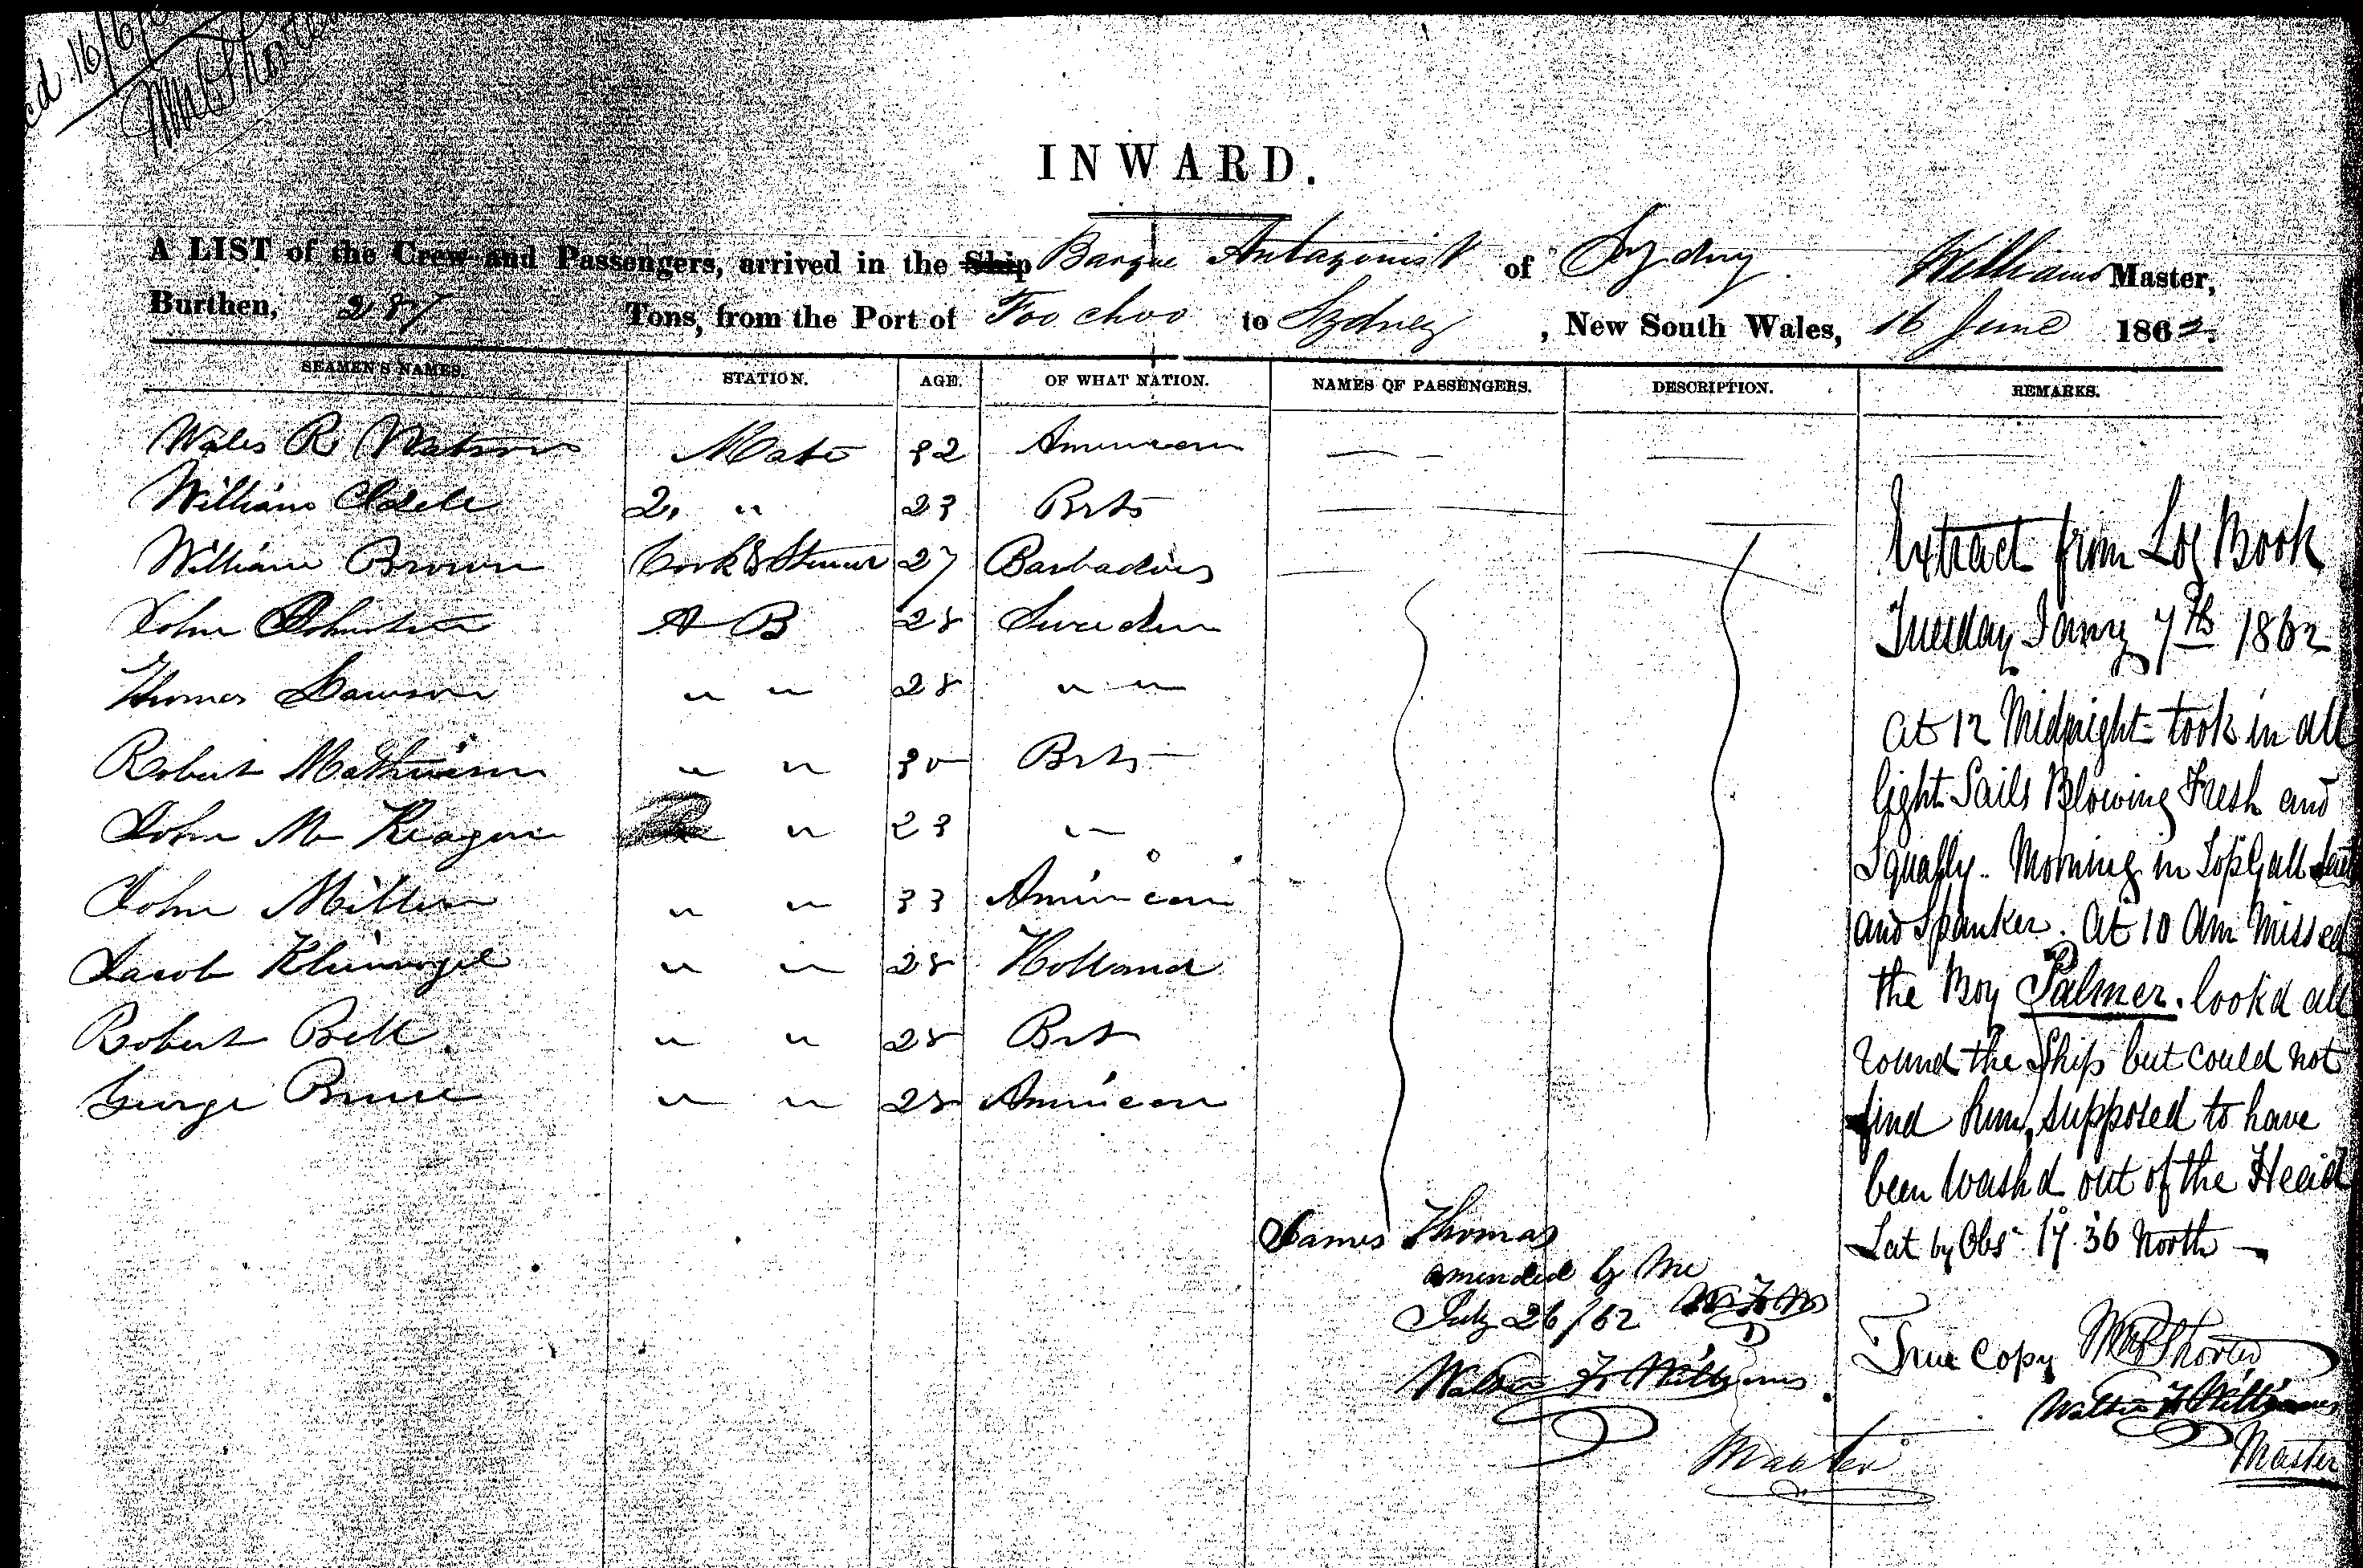 16/6/
INWARD.
A LIST of the Crew and Passengers, arrived in the Ship Barque Antagonist of Sydney Williams Master,
Burthen, 287 Tons, from the Port of Foo choo to Sydney, New South Wales, 16 June 1862.
SEAMEN'S NAMES. STATION. AGE. OF WHAT NATION. NAMES OF PASSENGERS. DESCRIPTION. REMARKS.
Wales R Watson Mate 32 American
William 2. " 23 Brts
William Brown Cook & Stewar 27 Barbadoes
John Johnston A B 28 Sweden
Thomas Lawson " " 28 " "
Robert " " 30 Brts
John M " 23 "
John Miller " " 33 American
Jacob " " 28 Holland
Robert Bell " " 28 Brt
George Bruce " " 28 American
Extract from Log Book
Tuesday Jany 7th 1862
At 12 Midnight took in all
light Sails Blowing Fresh and
Squally. Morning in TopGall
and Spanker. At 10 Am Missed
the Boy Palmer. look'd all
round the Ship but could not
find him, supposed to have
been Wash'd out of the Head
Lat by Obs 17° 36' North
James Thomas
amended by Me
July 26/62
Walter F Williams
Master
True Copy
Walter F Williams
Master